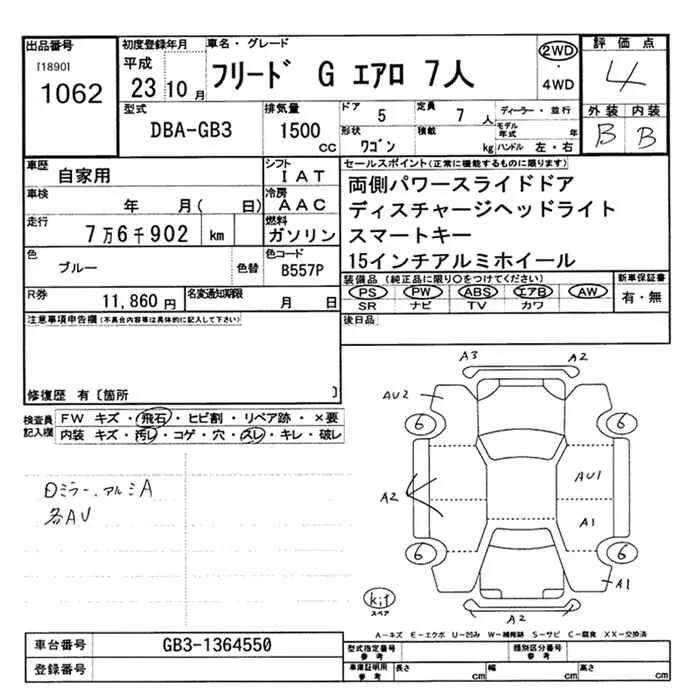 出品番号 初度登録年月 車名・グレード 2WD 評価点
[1890] 平成
1062 23 10 月 フリード G エアロ 7人 ・ 4WD 4
型式 排気量 ドア 5 定員 7 人 ディーラー・並行 外装 内装
DBA-GB3 1500 cc 形状 ワゴン 積載 kg モデル年式 年 ハンドル 左・右 B B
車歴 自家用 シフト IAT セールスポイント(正常に機能するものに限ります)
車検 年 月( 日) 冷房 AAC 両側パワースライドドア
走行 7万6千902 km 燃料 ガソリン ディスチャージヘッドライト
スマートキー
色 ブルー 色替 色コード B557P 15インチアルミホイール
R券 11,860円 名変通知期限 月 日 装備品 (純正品に限り○をつけてください) 新車保証書
PS PW ABS エアB AW 有・無
SR ナビ TV カワ
注意事項申告欄(不具合内容等は具体的に記入して下さい) 後日品
修復歴 有〔箇所 〕
検査員記入欄 FW キズ・飛石・ヒビ割・リペア跡・×要
内装 キズ・汚レ・コゲ・穴・スレ・キレ・破レ
ロミラー、アルミA
各AU
A3 A2
AU2
6 6
A2 AU1
A1
6 6
A1
kit
スペア
A2
A−キズ E−エクボ U−凹み W−補修跡 S−サビ C−腐食 XX−交換済
車台番号 GB3-1364550 型式指定番号参考 類別区分番号参考
登録番号 車庫証明用参考 長さ cm 幅 cm 高さ cm